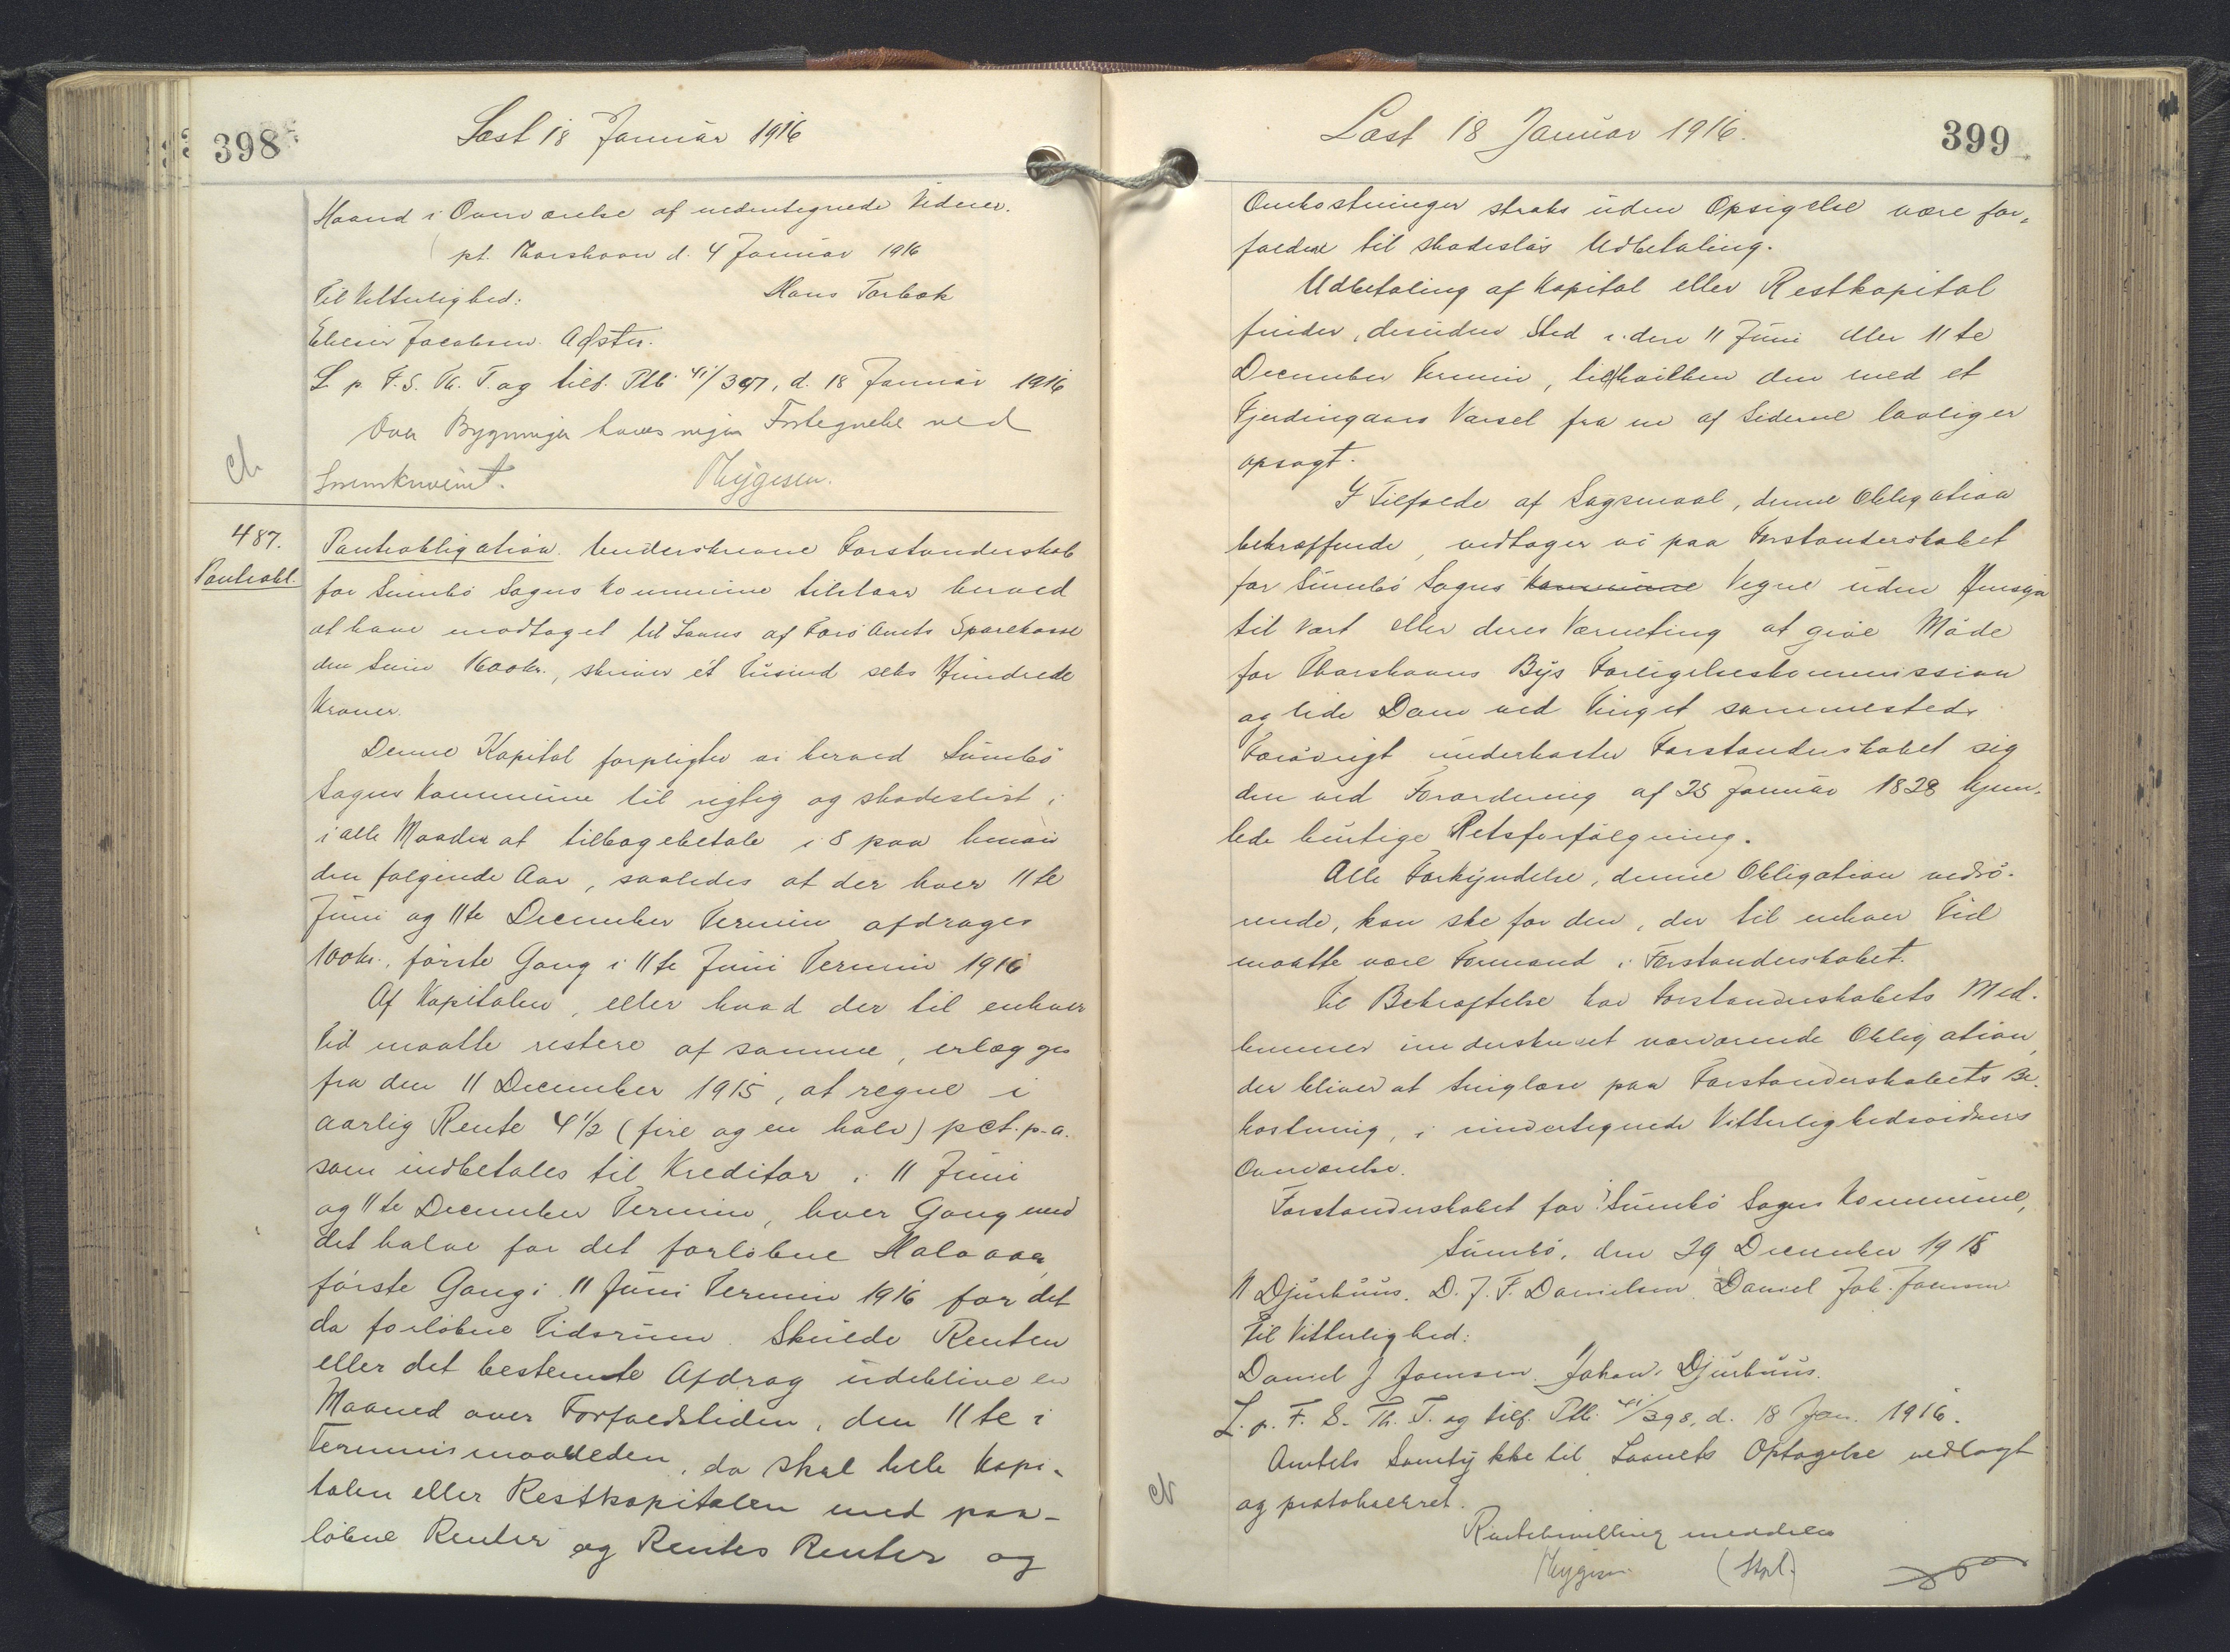 398
Læst 18 Januar 1916
Haand i Overværelse af undertegnede Vidner.
pt. Thorshavn d. 4 Januar 1916
Til Vitterlighed: Hans Torbak
Jacobsen. Adstr.
L. p. F. S. Th. T. og tilf. Ptb. 41/397, d. 18 Januar 1916
Over Bygninger haves ingen Fortegnelse ved
Mygesen.
487.
Panteobl.
Panteobligation. Underskrevne Forstanderskab
for Sumbö Sogns Kommune tilstaar herved
at have modtaget til Laans af Færö Amts Sparekasse
den Sum 1600 kr., skriver ét Tusind seks Hundrede
Kroner.
Denne Kapital forpligter vi herved Sumbö
Sogns Kommune til rigtig og skadeslöst i
i alle Maader at tilbagebetale i 8 paa hinan
den følgende Aar, saaledes at der hver 11te
Juni og 11te December Termin afdrages
100 kr., förste Gang i 11te Juni Termin 1916
Af Kapitalen, eller hvad der til enhver
Tid maatte restere af samme, erlægges
fra den 11 December 1915, at regne i
aarlig Rente 4 1/2 (fire og en halv) pct. p. a.
som indbetales til Kreditor i 11 Juni
og 11te December Termin, hver Gang med
det halve for det forløbne Halvaar,
förste Gang i 11 Juni Termin 1916 for det
da forløbne Tidsrum. Skulde Renten
eller det bestemte Afdrag udeblive en
Maaned over Forfaldstiden, den 11te i
Terminsmaaneden, da skal hele Kapi-
talen eller Restkapitalen med paa-
løbne Renter og Rentes Renter og
Læst 18 Januar 1916.
399
Omkostninger straks uden Opsigelse være for-
falden til skadeslös Udbetaling.
Udbetaling af Kapital eller Restkapital
finder, desuden Sted i den 11 Juni eller 11te
December Termin, til hvilken den med et
Fjerdingaars Varsel fra en af Siderne lovlig er
opsagt.
I Tilfælde af Søgsmaal, denne Obligation
betræffende, vedtager vi paa Forstanderskabet
for Sumbö Sogns Kommune Vegne uden Hensyn
til vort eller deres Værneting at give Möde
for Thorshavns Bys Forligelseskommission
og lide Dom ved Tinget sammesteds
Forövrigt underkaster Forstanderskabet sig
den ved Forordning af 25 Januar 1828 hjem-
lede hurtige Retsforfölgning.
Alle Forkyndelse, denne Obligation vedrö-
rende, kan ske for den, der til enhver Tid
maatte være Formand i Forstanderskabet.
Til Bekræftelse har Forstanderskabets Med-
lemmer underskrevet nærværende Obligation,
der bliver at tinglæse paa Forstanderskabets Be-
kostning, i undertegnede Vitterlighedsvidners
Overværelse.
Forstanderskabet for Sumbö Sogns Kommune,
Sumbö, den 29 December 1915
N Djurhuus. D. J. F. Danielsen. Daniel Joh. Joensen
Til Vitterlighed:
Daniel J Joensen. Johan Djurhuus.
L. p. F. S. Th. T. og tilf. Ptb. 41/398, d. 18 Jan. 1916.
Amtets Samtykke til Laanets Optagelse vedlagt
og protokolleret.
Rentebevilling meddeles
Mygesen (Stpl.)